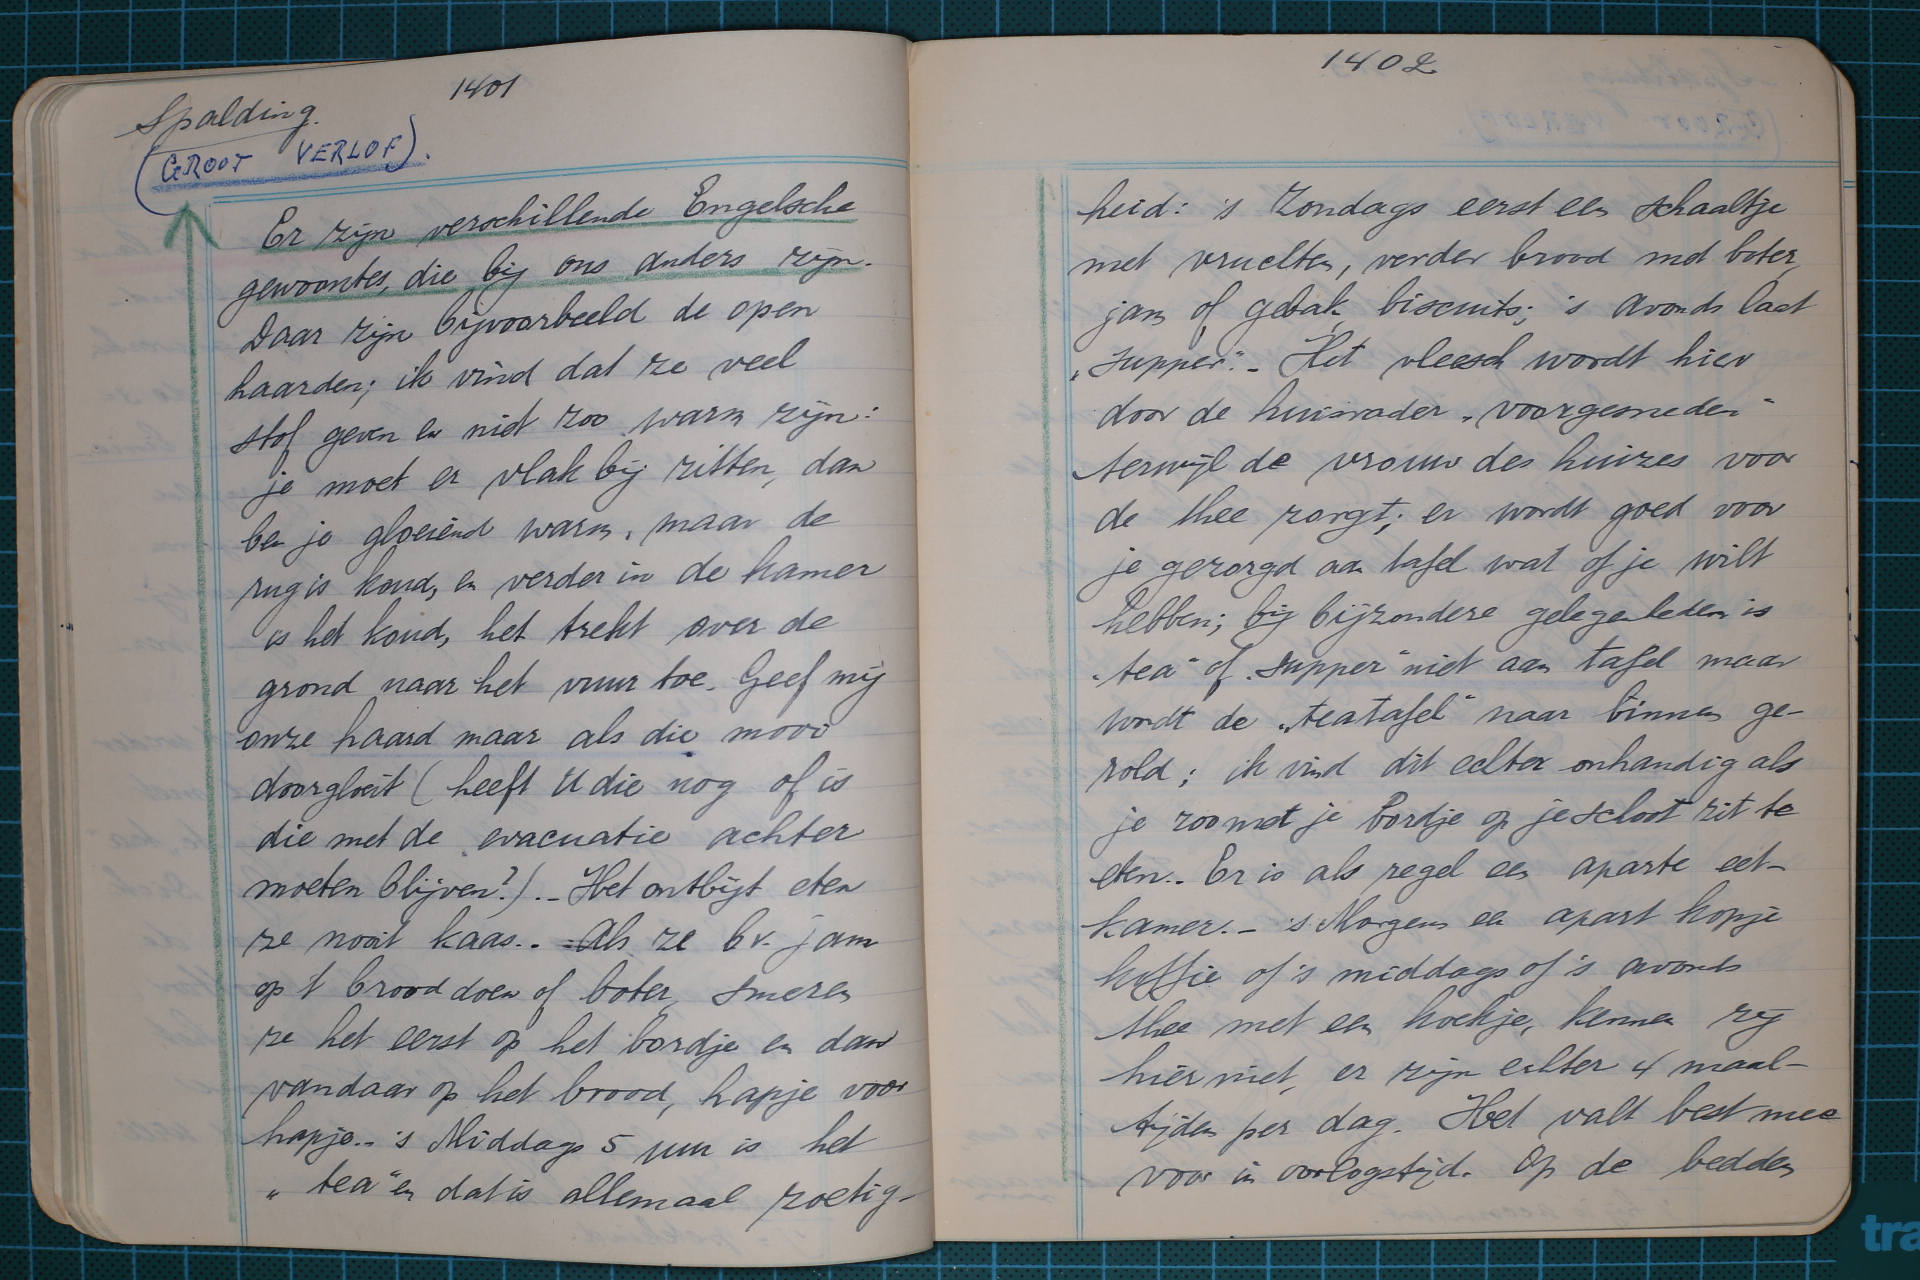 1401
Spalding.
(GROOT VERLOF).
Er zijn verschillende Engelsche
gewoontes, die bij ons anders zijn.
Daar zijn bijvoorbeeld de open
haarden; ik vind dat ze veel
stof geven en niet zoo warm zijn:
je moet er vlak bij zitten, dan
ben je gloeiend warm, maar de
rug is koud, en verder in de kamer
is het koud, het trekt over de
grond naar het vuur toe. Geef mij
onze haard maar als die mooi
doorgloeit (heeft U die nog of is
die met de evacuatie achter
moeten blijven?).- Het ontbijt eten
ze nooit kaas.- Als ze bv. jam
op 't brood doen of boter, smeren
ze het eerst op het bordje en dan
vandaar op het brood, hapje voor
hapje.- 's Middags 5 uur is het
"tea" en dat is allemaal zoetig-
1402
heid: 's Zondags eerst een schaaltje
met vruchten, verder brood met boter,
jam of gebak, biscuits; 's avonds laat
"supper".- Het vleesch wordt hier
door de huisvader "voorgesneden"
terwijl de vrouw des huizes voor
de thee zorgt; er wordt goed voor
je gezorgd aan tafel wat of je wilt
hebben; bij bijzondere gelegenheden is
"tea" of "supper" niet aan tafel maar
wordt de "teatafel" naar binnen ge-
rold; ik vind dit echter onhandig als
je zoo met je bordje op je schoot zit te
eten.- Er is als regel een aparte eet-
kamer.- 's Morgens een apart kopje
koffie of 's middags of 's avonds
thee met een koekje, kennen zij
hier niet, er zijn echter 4 maal-
tijden per dag. Het valt best mee
voor in oorlogstijd. Op de bedden
tra